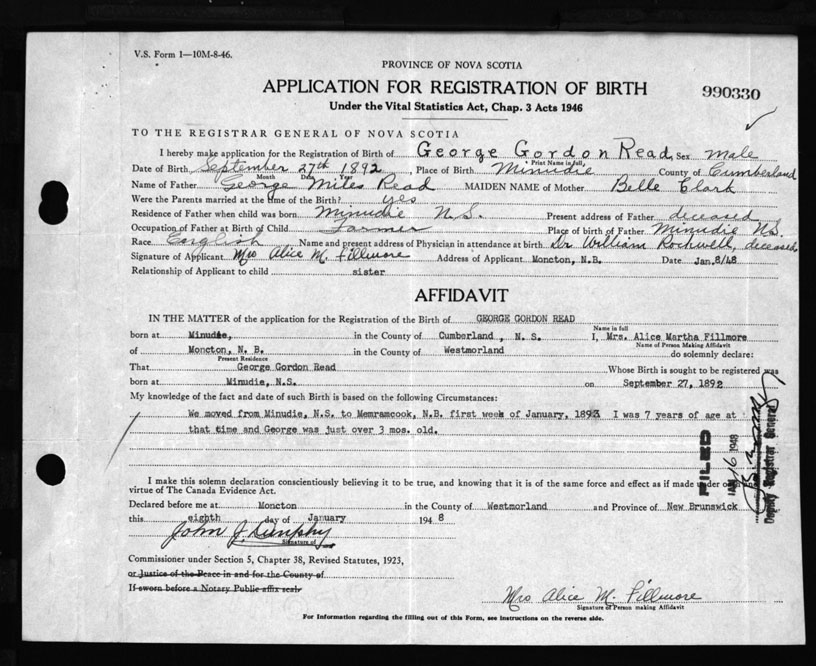 V.S. Form 1—10M-8-46.
PROVINCE OF NOVA SCOTIA
APPLICATION FOR REGISTRATION OF BIRTH
990330
Under the Vital Statistics Act, Chap. 3 Acts 1946
TO THE REGISTRAR GENERAL OF NOVA SCOTIA
I hereby make application for the Registration of Birth of George Gordon Read, Sex Male
Print Name in full
Date of Birth September 27th 1892, Place of Birth Minudie County of Cumberland
Month Date Year
Name of Father George Miles Read MAIDEN NAME of Mother Belle Clark
Were the Parents married at the time of the Birth? yes
Residence of Father when child was born Minudie N.S. Present address of Father deceased
Occupation of Father at Birth of Child Farmer Place of birth of Father Minudie N.S.
Race English Name and present address of Physician in attendance at birth Dr William Rockwell, deceased
Signature of Applicant Mrs Alice M. Fillmore Address of Applicant Moncton, N.B. Date Jan.8/48
Relationship of Applicant to child sister
AFFIDAVIT
IN THE MATTER of the application for the Registration of Birth of GEORGE GORDON READ
Name in full
born at Minudie, in the County of Cumberland, N. S. I, Mrs. Alice Martha Fillmore
Name of Person Making Affidavit
of Moncton, N. B. in the County of Westmorland do solemnly declare:
Present Residence
That George Gordon Read Whose Birth is sought to be registered was
born at Minudie, N.S. on September 27, 1892
My knowledge of the fact and date of such Birth is based on the following Circumstances:
We moved from Minudie, N.S. to Memramcook, N.B. first week of January, 1893 I was 7 years of age at
that time and George was just over 3 mos. old.
I make this solemn declaration conscientiously believing it to be true, and knowing that it is of the same force and effect as if made under oath
virtue of The Canada Evidence Act.
Declared before me at Moncton in the County of Westmorland and Province of New Brunswick
this eighth day of January 1948
John J. Dunphy
Signature of
Commissioner under Section 5, Chapter 38, Revised Statutes, 1923,
or Justice of the Peace in and for the County of
If sworn before a Notary Public affix seal.
Mrs Alice M. Fillmore
Signature of Person making Affidavit
For Information regarding the filling out of this Form, see instructions on the reverse side.
FILED
JAN 16 1948
Deputy Registrar General